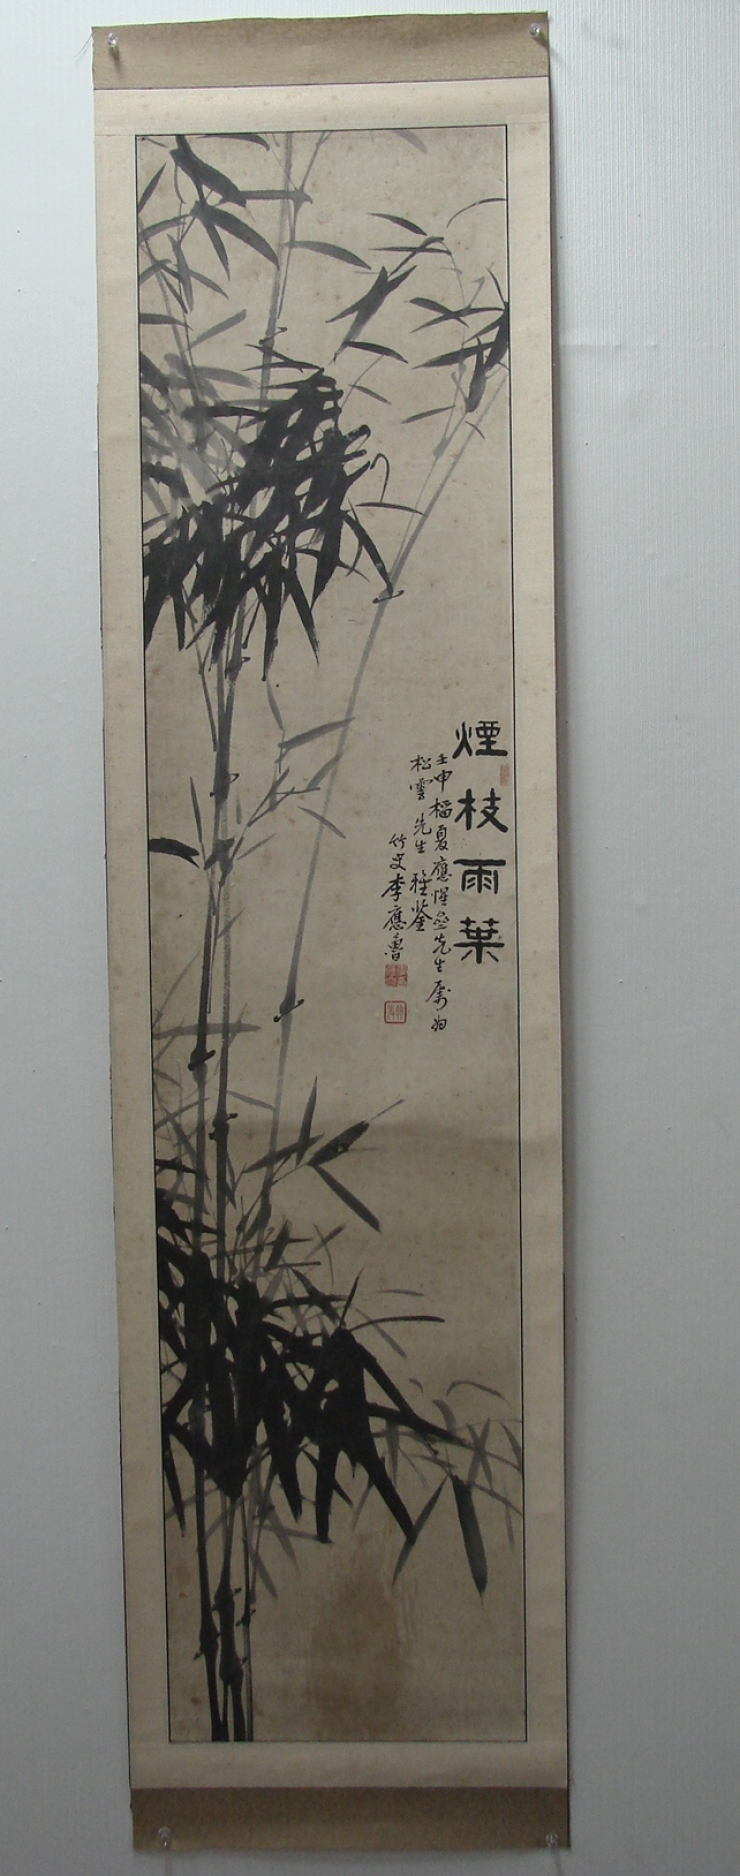 煙枝雨葉
壬申榴夏應惺盦先生屬為
松雲先生雅鑒
竹叟李應魯